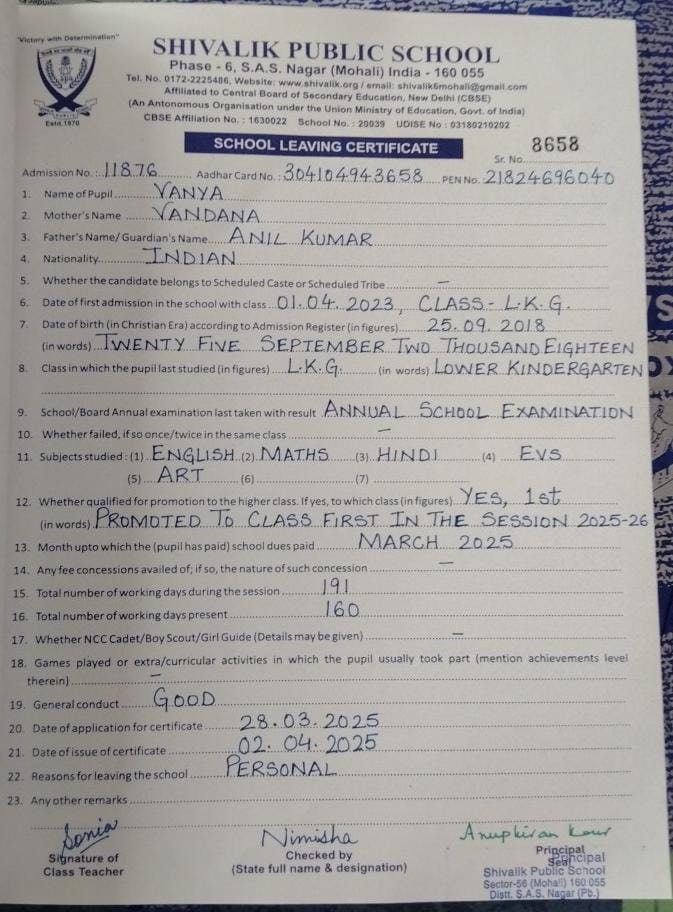 "Victory with Determination"
SHIVALIK PUBLIC SCHOOL
Phase - 6, S.A.S. Nagar (Mohali) India - 160 055
Tel. No. 0172-2225486, Website: www.shivalik.org / email: shivalik6mohali@gmail.com
Affiliated to Central Board of Secondary Education, New Delhi (CBSE)
(An Antonomous Organisation under the Union Ministry of Education, Govt. of India)
CBSE Affiliation No. : 1630022 School No. : 20039 UDISE No : 03180210202
Estd. 1970
SCHOOL LEAVING CERTIFICATE
Sr. No. 8658
Admission No.: 11876 Aadhar Card No.: 304104943658 PEN No. 21824696040
1. Name of Pupil VANYA
2. Mother's Name VANDANA
3. Father's Name/ Guardian's Name ANIL KUMAR
4. Nationality INDIAN
5. Whether the candidate belongs to Scheduled Caste or Scheduled Tribe —
6. Date of first admission in the school with class 01.04.2023, CLASS- L.K.G.
7. Date of birth (in Christian Era) according to Admission Register (in figures) 25.09.2018
(in words) TWENTY FIVE SEPTEMBER TWO THOUSAND EIGHTEEN
8. Class in which the pupil last studied (in figures) L.K.G. (in words) LOWER KINDERGARTEN
9. School/Board Annual examination last taken with result ANNUAL SCHOOL EXAMINATION
10. Whether failed, if so once/twice in the same class —
11. Subjects studied : (1) ENGLISH (2) MATHS (3) HINDI (4) EVS
(5) ART (6) (7)
12. Whether qualified for promotion to the higher class. If yes, to which class (in figures) YES, 1st
(in words) PROMOTED TO CLASS FIRST IN THE SESSION 2025-26
13. Month upto which the (pupil has paid) school dues paid MARCH 2025
14. Any fee concessions availed of; if so, the nature of such concession —
15. Total number of working days during the session 191
16. Total number of working days present 160
17. Whether NCC Cadet/Boy Scout/Girl Guide (Details may be given) —
18. Games played or extra/curricular activities in which the pupil usually took part (mention achievements level
therein) —
19. General conduct GOOD
20. Date of application for certificate 28.03.2025
21. Date of issue of certificate 02.04.2025
22. Reasons for leaving the school PERSONAL
23. Any other remarks
Sonia Nimisha Anupkiran Kaur
Signature of
Class Teacher
Checked by
(State full name & designation)
Principal
Seal
Principal
Shivalik Public School
Sector-56 (Mohali) 160 055
Distt. S.A.S. Nagar (Pb.)